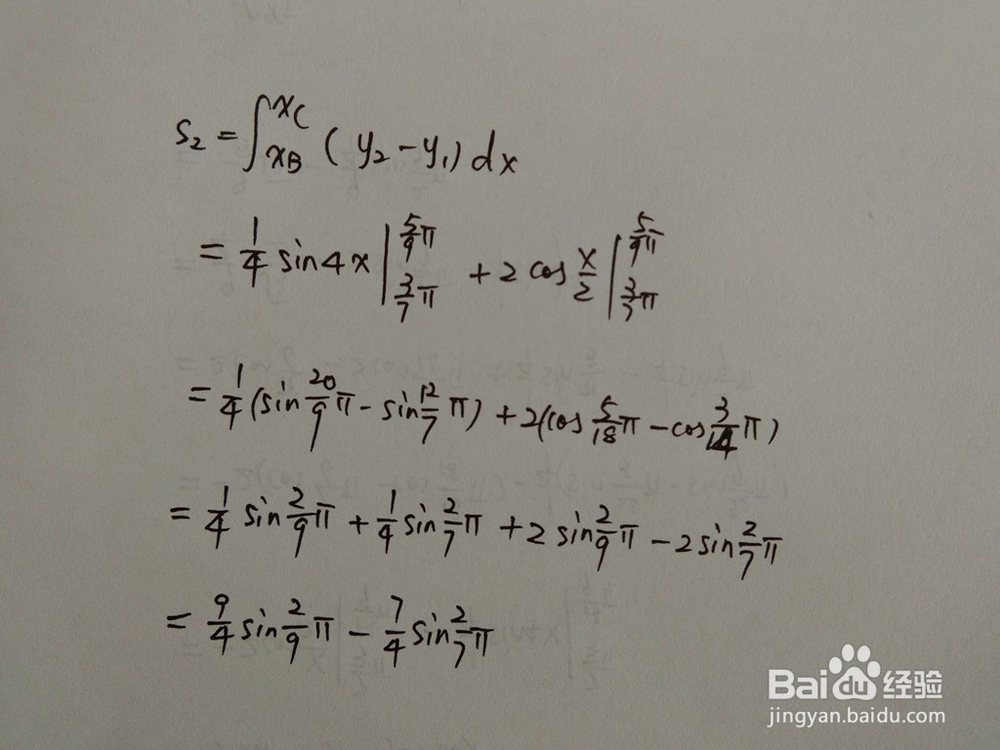 S₂ = ∫_{xB}^{xC} (y₂ - y₁) dx
= 1/4 sin4x |_{3/7 π}^{5/9 π} + 2 cos x/2 |_{3/7 π}^{5/9 π}
= 1/4 (sin 20/9 π - sin 12/7 π) + 2(cos 5/18 π - cos 3/14 π)
= 1/4 sin 2/9 π + 1/4 sin 2/7 π + 2 sin 2/9 π - 2 sin 2/7 π
= 9/4 sin 2/9 π - 7/4 sin 2/7 π
Baidu 经验
jingyan.baidu.com